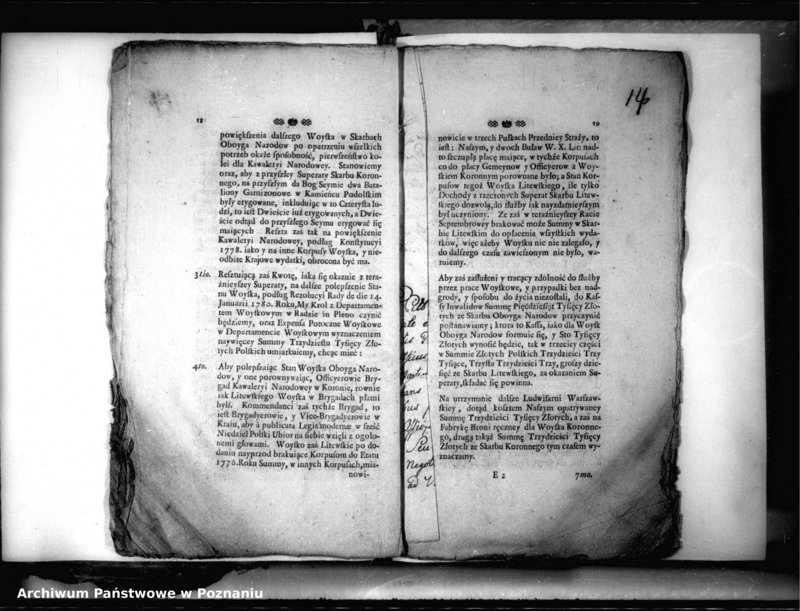 18
powiększenia dalszego Woyska w Skarbach
Oboyga Narodow po opatrzeniu wszelkich
potrzeb okaże sposobność, pierwszeństwo ko-
lei dla Kawaleryi Narodowey. Stanowiemy
oraz, aby z przyszłey Superaty Skarbu Koron-
nego, na przyszłym da Bog Seymie dwa Bata-
liony Garnizonowe w Kamieńcu Podolskim
były erygowane, inkludując w to Czterysta lu-
dzi, to iest Dwieście iuż erygowanych, a Dwie-
ście odtąd do przyszłego Seymu erygować się
maiących Reszta zaś tak na powiększenie
Kawaleryi Narodowey, podług Konstytucyi
1778. iako y na inne Korpusy Woyska, y nie-
odbite Kraiowe wydatki, obrocona być ma.
3tio. Resztuiącą zaś Kwotę, iaka się okazuie z tera-
źnieyszey Superaty, na dalsze polepszenie Sta-
nu Woyska, podług Rezolucyi Rady de die 14.
Januarii 1780. Roku, My Krol z Departamen-
tem Woyskowym w Radzie in Pleno czynić
będziemy, oraz Expensa Potoczne Woyskowe
w Departamencie Woyskowym wyznaczeniem
naywięcey Summy Trzydziestu Tysięcy Zło-
tych Polskich umiarkuiemy, chcąc mieć:
4to. Aby polepszaiąc Stan Woyska Oboyga Naro-
dow, y one porownywaiąc, Officyerowie Bry-
gad Kawaleryi Narodowey w Koronie, rownie
iak Litewskiego Woyska w Brygadach płatni
byli. Kommendanci zaś tychże Brygad, to
iest Brygadyerowie, y Vice-Brygadyerowie w
Kraiu, aby à publicata Legis modernæ w sześć
Niedziel Polski Ubior na siebie wzięli z ogolo-
nemi głowami. Woysko zaś Litewskie po do-
daniu nayprzod brakuiące Korpusom do Etatu
1776. Roku Summy, w innych Korpusach, mia-
nowi-
14
19
nowicie w trzech Pułkach Przedniey Straży, to
iest: Naszym, y dwoch Buław W. X. Lit: nad-
to szczupłą płacę maiące, w tychże Korpusach
co do płacy Gemeynow y Officyerow z Woy-
skiem Koronnym porownane było; a Stan Kor-
pusow tegoż Woyska Litewskiego, ile tylko
Dochody z rzeczonych Superat Skarbu Litew-
skiego dozwolą, do służby iak nayzdatnieyszym
był uczyniony. Że zaś w teraźnieyszey Racie
Septembrowey brakować może Summy w Skar-
bie Litewskim do opłacenia wszystkich wyda-
tkow, więc ażeby Woysku nic nie zalegało, y
do dalszego czasu zawieszonym nie było, wa-
ruiemy.
Aby zaś zasłużeni y tracący zdolność do służby
przez prace Woyskowe, y przypadki bez nad-
grody, y sposobu do życia niezostali, do Kas-
sy Inwalidow Summę Pięćdziesiąt Tysięcy Zło-
tych ze Skarbu Oboyga Narodow przyczynić
postanawiamy; ktora to Kassa, iako dla Woysk
Oboyga Narodow formuie się, y Sto Tysięcy
Złotych wynosić będzie, tak w trzeciey części
w Summie Złotych Polskich Trzydzieści Trzy
Tysiące, Trzysta Trzydzieści Trzy, groszy dzie-
sięć ze Skarbu Litewskiego, za okazaniem Su-
peraty, składać się powinna.
Na utrzymanie dalsze Ludwisarni Warszaw-
skiey, dotąd kosztem Naszym opatrywaney
Summę Trzydzieści Tysięcy Złotych, a zaś na
Fabrykę Broni ręczney dla Woyska Koronne-
go, drugą takąż Summę Trzydzieści Tysięcy
Złotych ze Skarbu Koronnego tym czasem wy-
znaczamy.
E 2 7mo.
negot
Archiwum Państwowe w Poznaniu